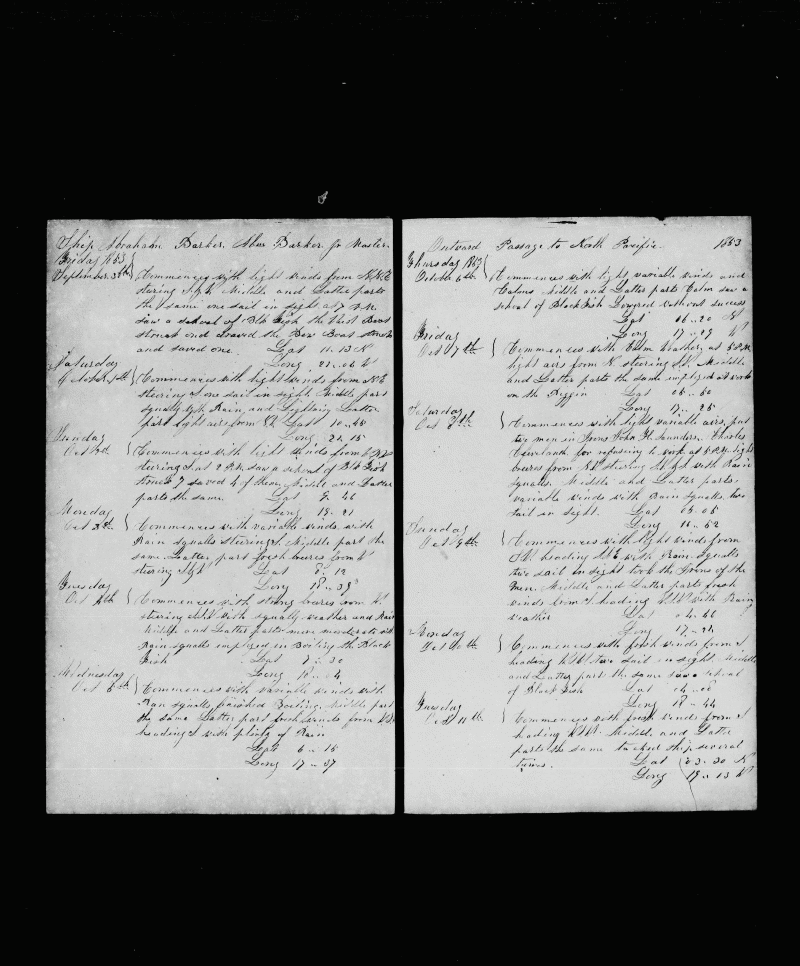 Ship Abraham Barker. Abner Barker Jr Master.
Friday 1853
September 30th Commences with light winds from NNE
stering Middle and Latter parts
the same one sail in sight at 7 A.M.
Saw a school of Blk Fish the Waist Boat
struck and the Bow Boat struck
and saved one. Lat 11.. 13 N
Long 21.. 06 W
Saturday
October 1st Commences with light winds from NE
steering S. one sail in sight Middle part
squally with Rain and Lightning Latter
part light airs from Lat 10.. 48
Long 21.. 15
Sunday
Oct 2nd Commences with light winds from
steering S. at 2 P.M. saw a school of Blk Fish
struck 7 saved 4 of them. Middle and Latter
parts the same. Lat 9.. 46
Long 19.. 21
Monday
Oct 3rd Commences with variable winds with
Rain squalls steering S. Middle part the
same Latter part fresh breezes from W
steering Lat 8.. 12
Long 18.. 39
Tuesday
Oct 4th Commences with strong breezes from
steering with squally weather and Rain
Middle and Latter parts more moderate with
Rain squalls employed in Boiling the Black
Fish Lat 7.. 30
Long 18.. 04
Wednesday
Oct 5th Commences with variable winds with
Rain squalls finished Boiling. Middle part
the same Latter part fresh winds from
heading S with plenty of Rain
Lat 6.. 15
Long 17.. 37
Outward Passage to North Pacific. 1853
Thursday 1853
October 6th Commences with light variable winds and
Calms Middle and Latter parts Calm saw a
school of Black Fish Lowered without success
Lat 06.. 20 N
Long 17.. 29 W
Friday
Oct 7th Commences with Calm Weather, at 5 P.M.
light airs from N. steering Middle
and Latter parts the same employed at work
on the Riggin Lat 05.. 50
Long 17.. 25
Saturday
Oct 8th Commences with light variable airs, put
two men in Irons John H. Saunders. Charles
for refusing to work at 5 P.M. light
breezes from steering with Rain
squalls. Middle and Latter parts
variable winds with Rain squalls, two
sail in sight. Lat 05.. 05
Long 16.. 52
Sunday
Oct 9th Commences with light winds from
heading with Rain squalls
two sail in sight took the Irons of the
men. Middle and Latter parts fresh
winds from S heading with Rainy
weather Lat 04.. 46
Long 17.. 24
Monday
Oct 10th Commences with fresh winds from S
heading two sail in sight. Middle
and Latter part the same saw a school
of Black Fish Lat 04.. 00
Long 18.. 44
Tuesday
Oct 11th Commences with fresh winds from S
heading Middle and Latter
parts the same tacked ship several
times. Lat 03.. 30 N
Long 19.. 13 W